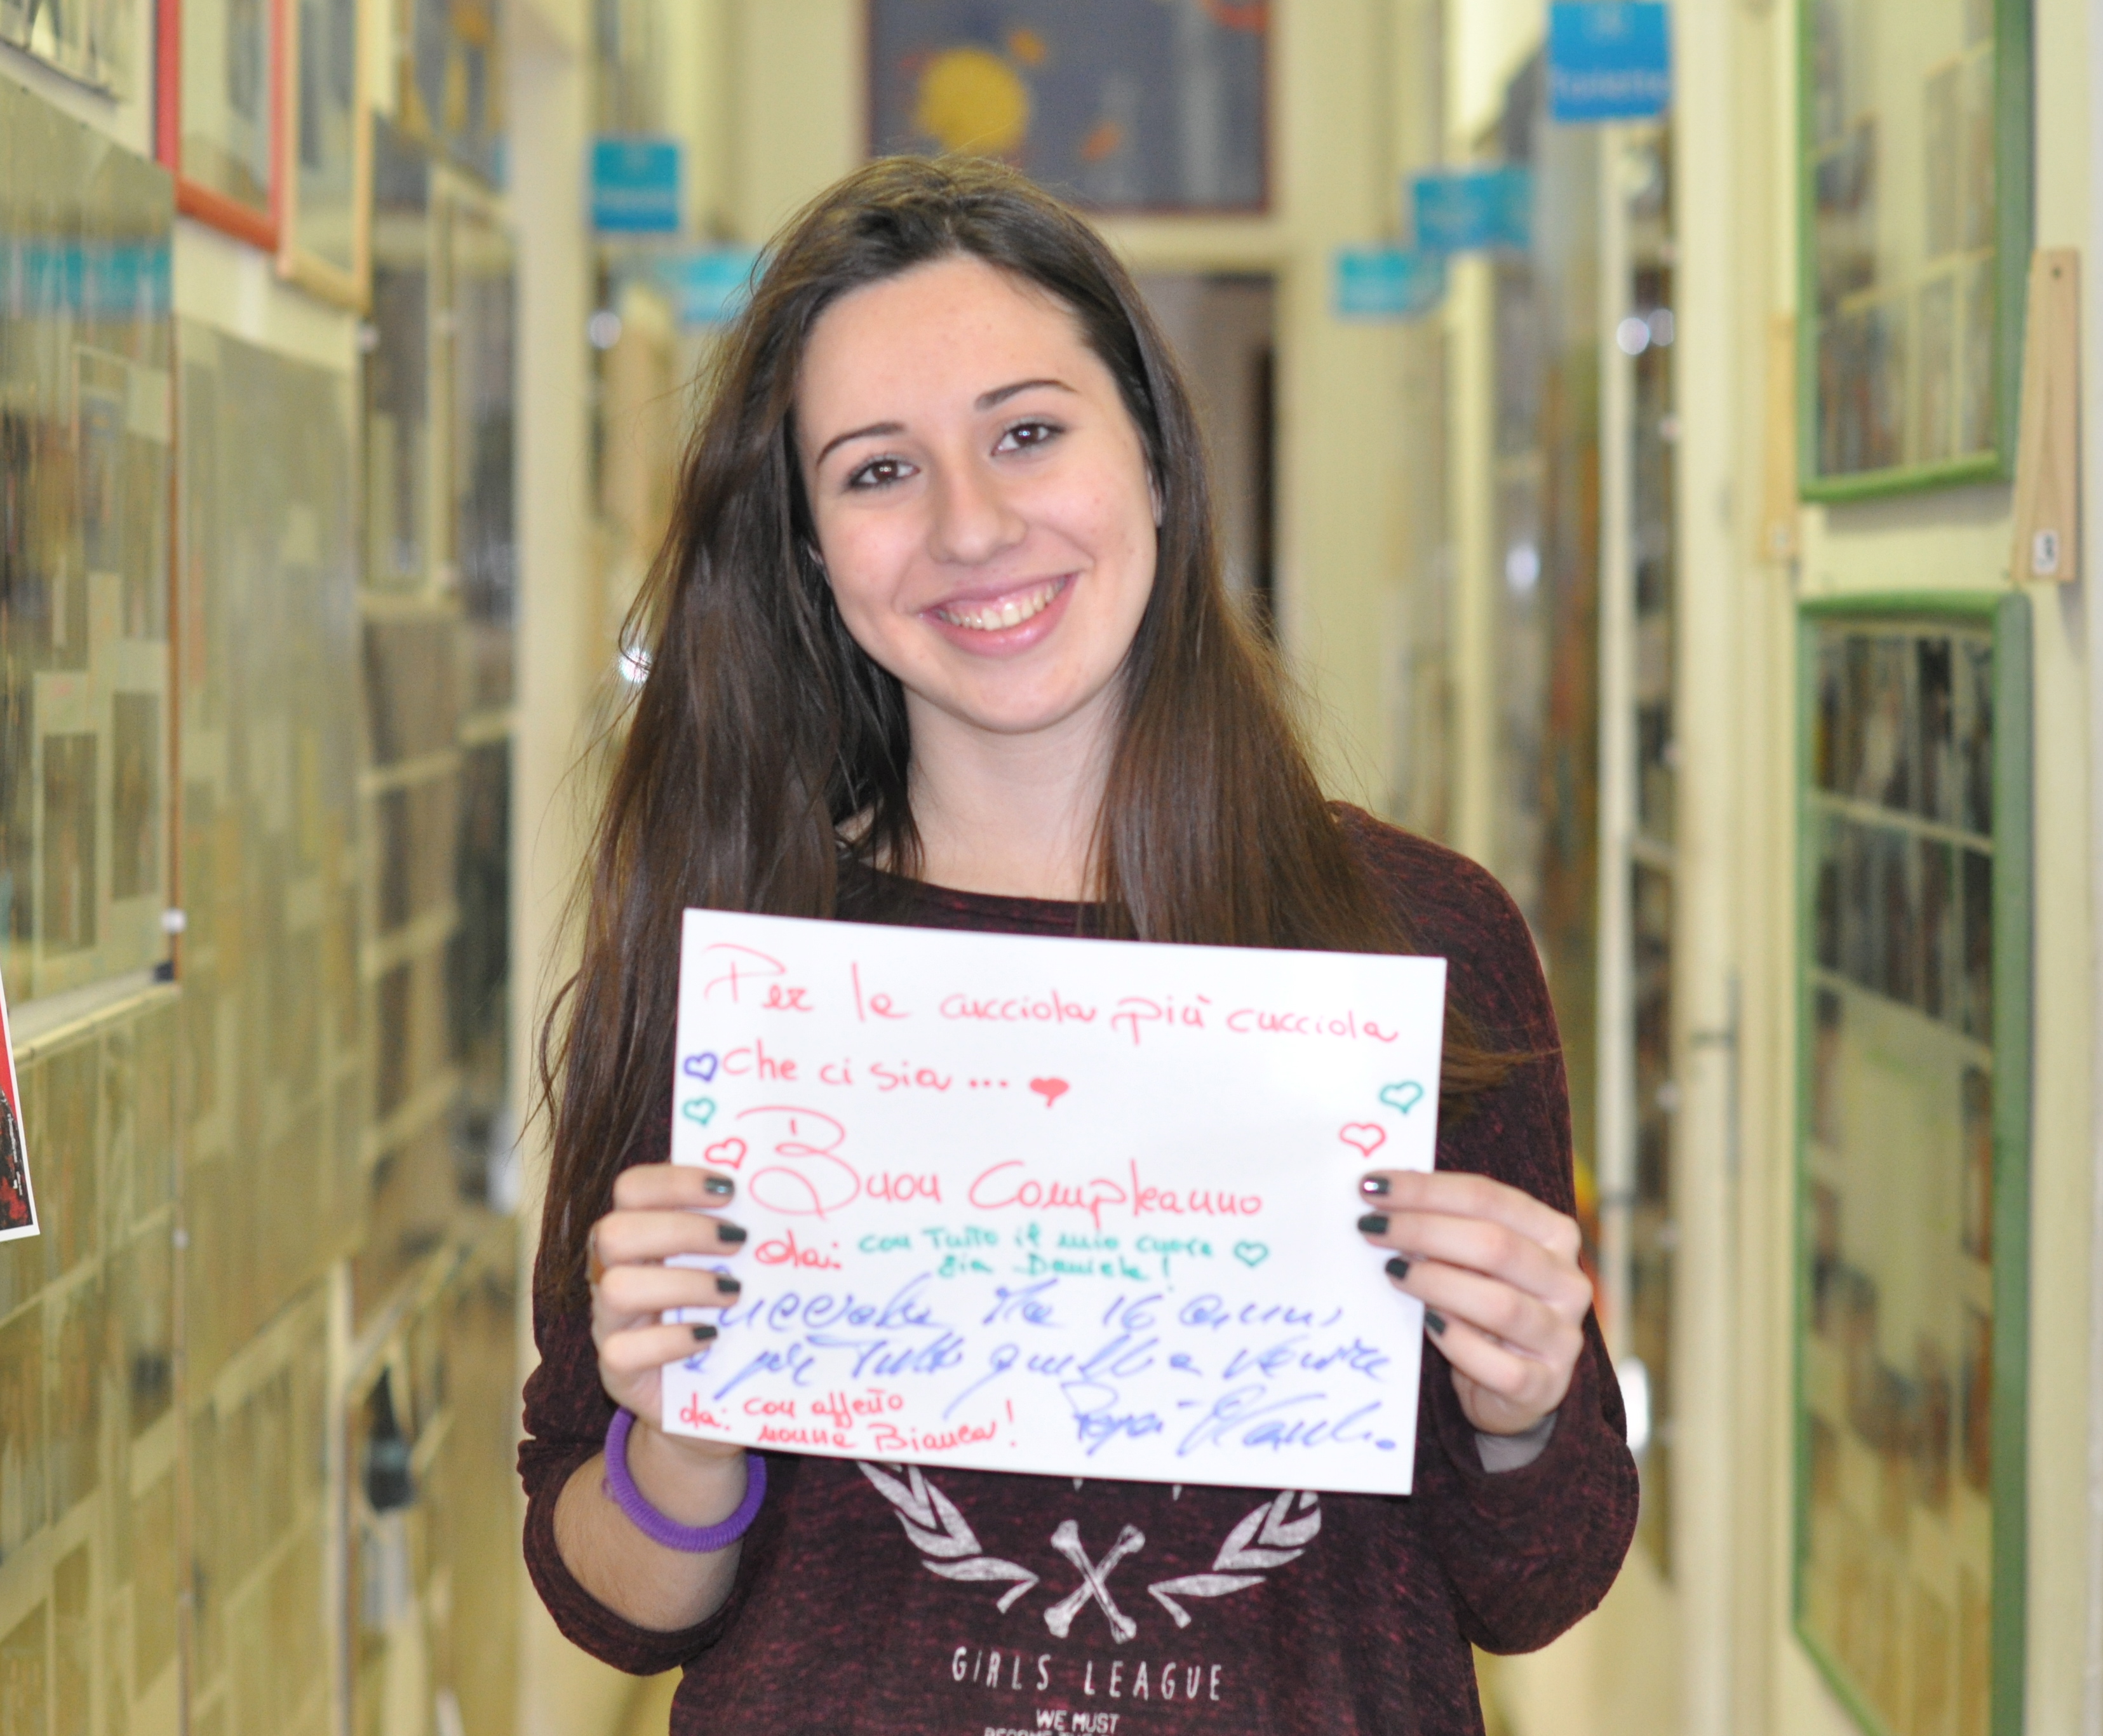 Per la cucciola più cucciola
che ci sia...
Buon Compleanno
da: con tutto il mio cuore
zia Daniela!
Cucciola 16 anni
e per tutti quelli a venire
da: con affetto
nonna Bianca!
Papà
GIRLS LEAGUE
WE MUST